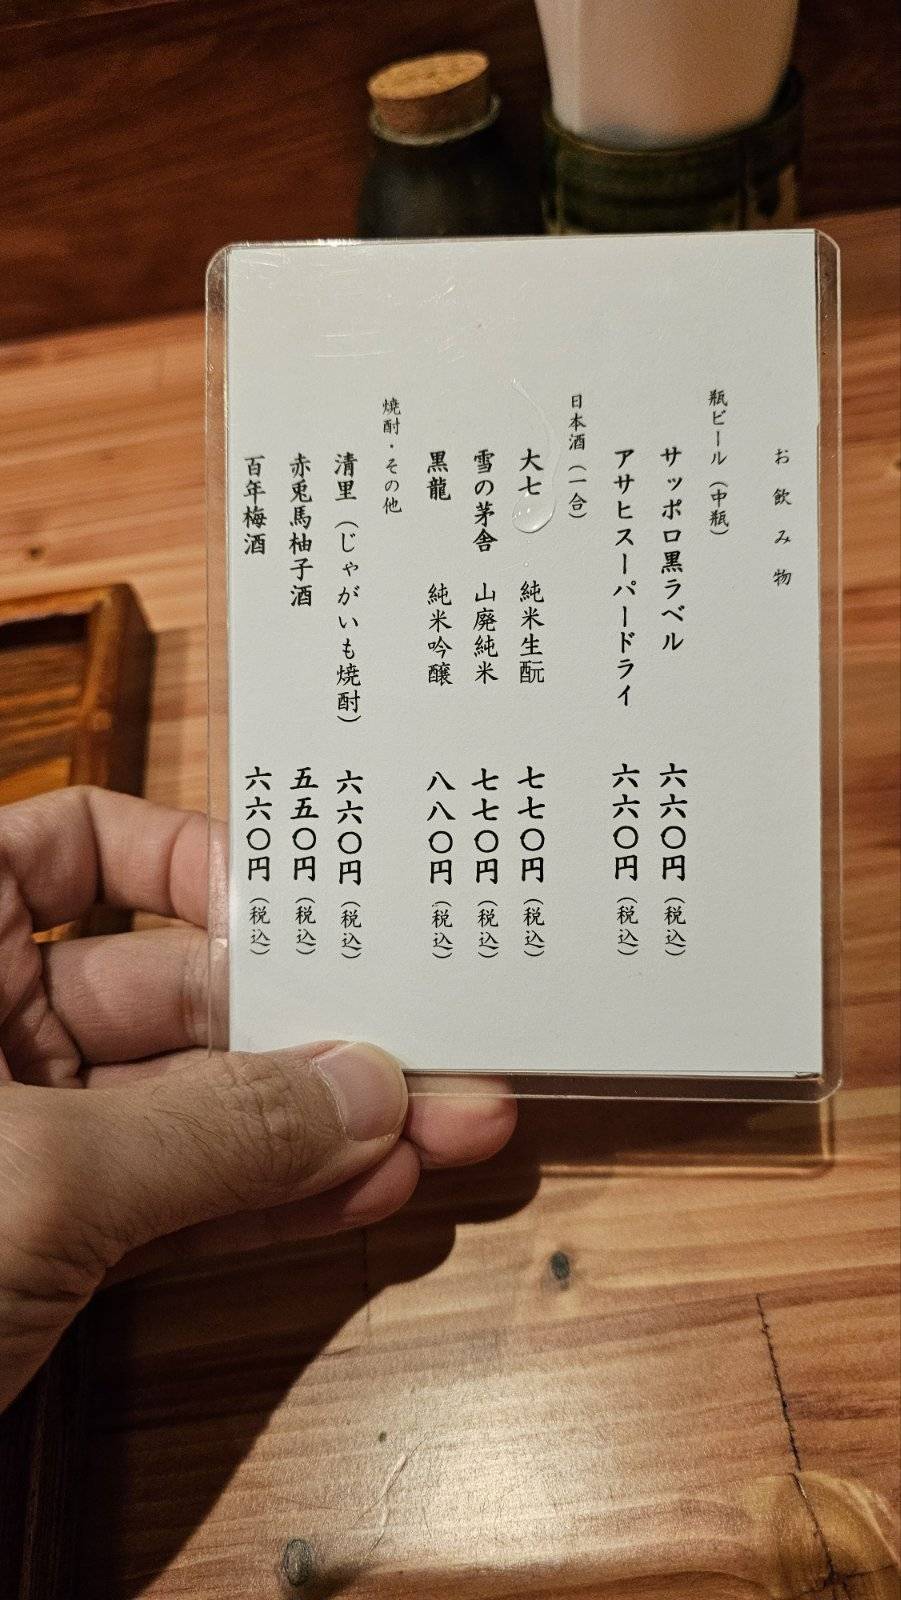 お飲み物
瓶ビール（中瓶）
サッポロ黒ラベル　六六〇円（税込）
アサヒスーパードライ　六六〇円（税込）
日本酒（一合）
大七　純米生酛　七七〇円（税込）
雪の茅舎　山廃純米　七七〇円（税込）
黒龍　純米吟醸　八八〇円（税込）
焼酎・その他
清里（じゃがいも焼酎）　六六〇円（税込）
赤兎馬柚子酒　五五〇円（税込）
百年梅酒　六六〇円（税込）